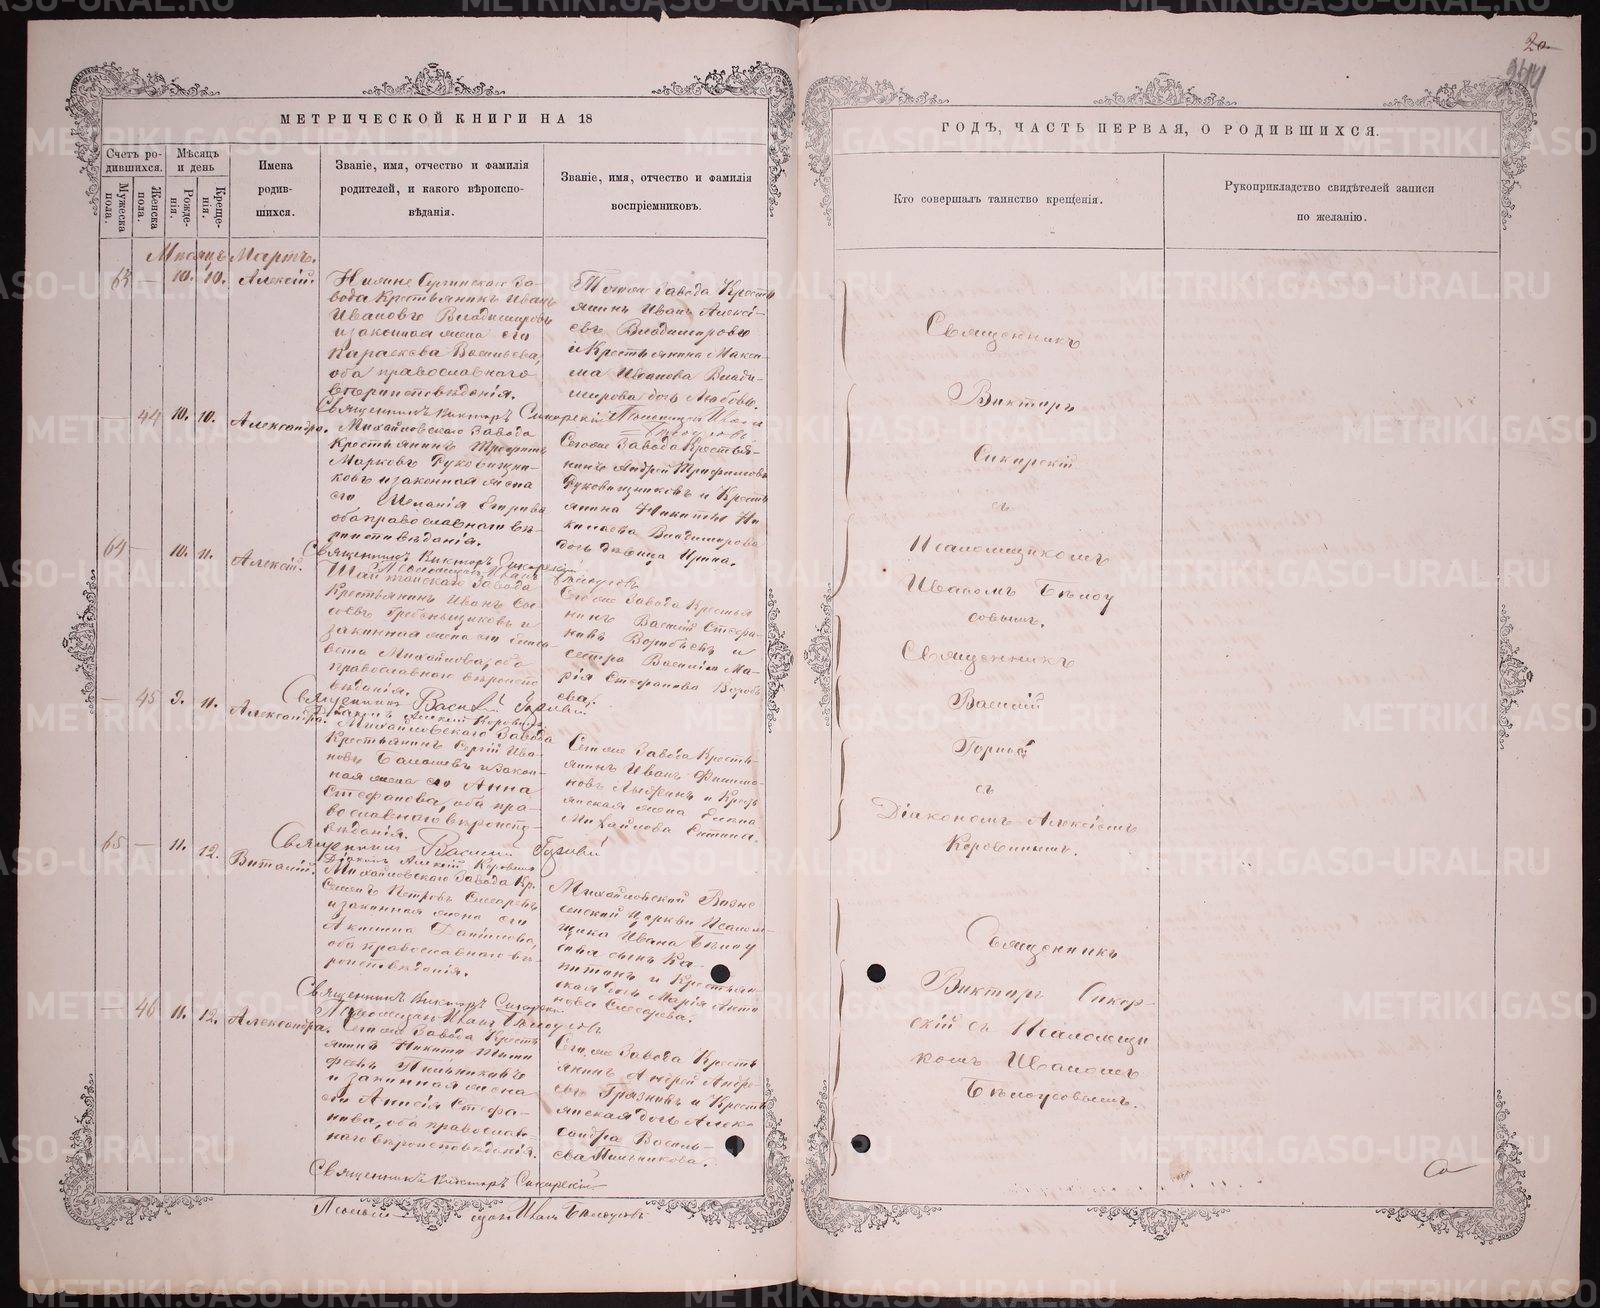 МЕТРИЧЕСКОЙ КНИГИ НА 18
Счетъ ро-
дившихся.
Мужеска
пола.
Женска
пола.
Мѣсяцъ
и день
Рожде-
нія.
Креще-
нія.
Имена
родив-
шихся.
Званіе, имя, отчество и фамилія
родителей, и какого вѣроиспо-
вѣданія.
Званіе, имя, отчество и фамилія
воспріемниковъ.
Мѣсяцъ Мартъ.
63 — 10. 10. Алексій.
Нижне Сергинскаго За-
вода Крестьянинъ Иванъ
Ивановъ Владимировъ
и законная жена его
Параскева Васильева,
оба православнаго
вѣроисповѣданія.
Тогоже завода Кресть
янинъ Иванъ Алексі-
евъ Владимировъ
и Крестьянина Макси-
ма Иванова Влади-
мирова дочь Любовь.
Священникъ Викторъ Сикорскій Псаломщикъ Иванъ
Бѣлоусовъ
— 44 10. 10. Александра.
Михайловскаго Завода
Крестьянинъ Трофимъ
Марковъ Рукавишни-
ковъ и законная жена
его Меланія Егорова
оба православнаго вѣ-
роисповѣданія.
Сегоже Завода Крестья-
нинъ Андрей Трофимовъ
Рукавишниковъ и Кресть
янина Никиты Ни-
колаева Владимирова
дочь девица Ирина.
Священникъ Викторъ Сикорскій
Псаломщикъ Иванъ Бѣлоусовъ
64 — 10. 11. Алексій.
Шайтанскаго Завода
Крестьянинъ Иванъ Сы-
соевъ Гребенщиковъ и
законная жена его Елиса-
вета Михайлова, оба
православнаго вѣроиспо
вѣданія.
Сегоже Завода Крестья
нинъ Василій Стефа-
новъ Воробьевъ и
сестра Василія Ма-
рія Стефанова Воробь
ева.
Священникъ Василій Горный
Діаконъ Алексій Коровинъ
— 45 9. 11. Александра.
Михайловскаго Завода
Крестьянинъ Сергій Ива-
новъ Балашевъ и закон-
ная жена его Анна
Стефанова, оба пра-
вославнаго вѣроиспо-
вѣданія.
Сегоже Завода Кресть-
янинъ Иванъ Филипо-
новъ и Кресть
янская жена Елена
Михайлова
Священникъ Василій Горный
Діаконъ Алексій Коровинъ
65 — 11. 12. Виталій.
Михайловскаго Завода Кр.
Симеонъ Петровъ Слесаревъ
и законная жена его
Акилина Данілова,
оба православнаго вѣ-
роисповѣданія.
Михайловской Возне
сенской Церкви Псалом-
щика Ивана Бѣлоу
сова сынъ Ка-
питонъ и Крестьян-
ская дочь Марія Анто
нова Слесарева.
Священникъ Викторъ Сикорскій
Псаломщикъ Иванъ Бѣлоусовъ
— 46 11. 12. Александра.
Сегоже Завода Кресть
янинъ Никита Тимо
феевъ Пильниковъ
и законная жена
его Анисія Стефа-
нова, оба православ-
наго вѣроисповѣданія.
Сегоже Завода Кресть
янинъ Андрей Андре-
евъ Грязновъ и Кресть
янская дочь Алек-
сандра Василь
ева Пильникова.
Священникъ Викторъ Сикорскій
Псаломщикъ Иванъ Бѣлоусовъ
ГОДЪ, ЧАСТЬ ПЕРВАЯ, О РОДИВШИХСЯ.
Кто совершалъ таинство крещенія.
Рукоприкладство свидѣтелей записи
по желанію.
Священникъ
Викторъ
Сикорскій
съ
Псаломщикомъ
Иваномъ Бѣлоу
совымъ.
Священникъ
Василій
Горный
съ
Діакономъ Алексіемъ
Коровинымъ.
Священникъ
Викторъ Сикор-
скій съ Псаломщи
комъ Иваномъ
Бѣлоусовымъ.
METRIKI.GASO-URAL.RU